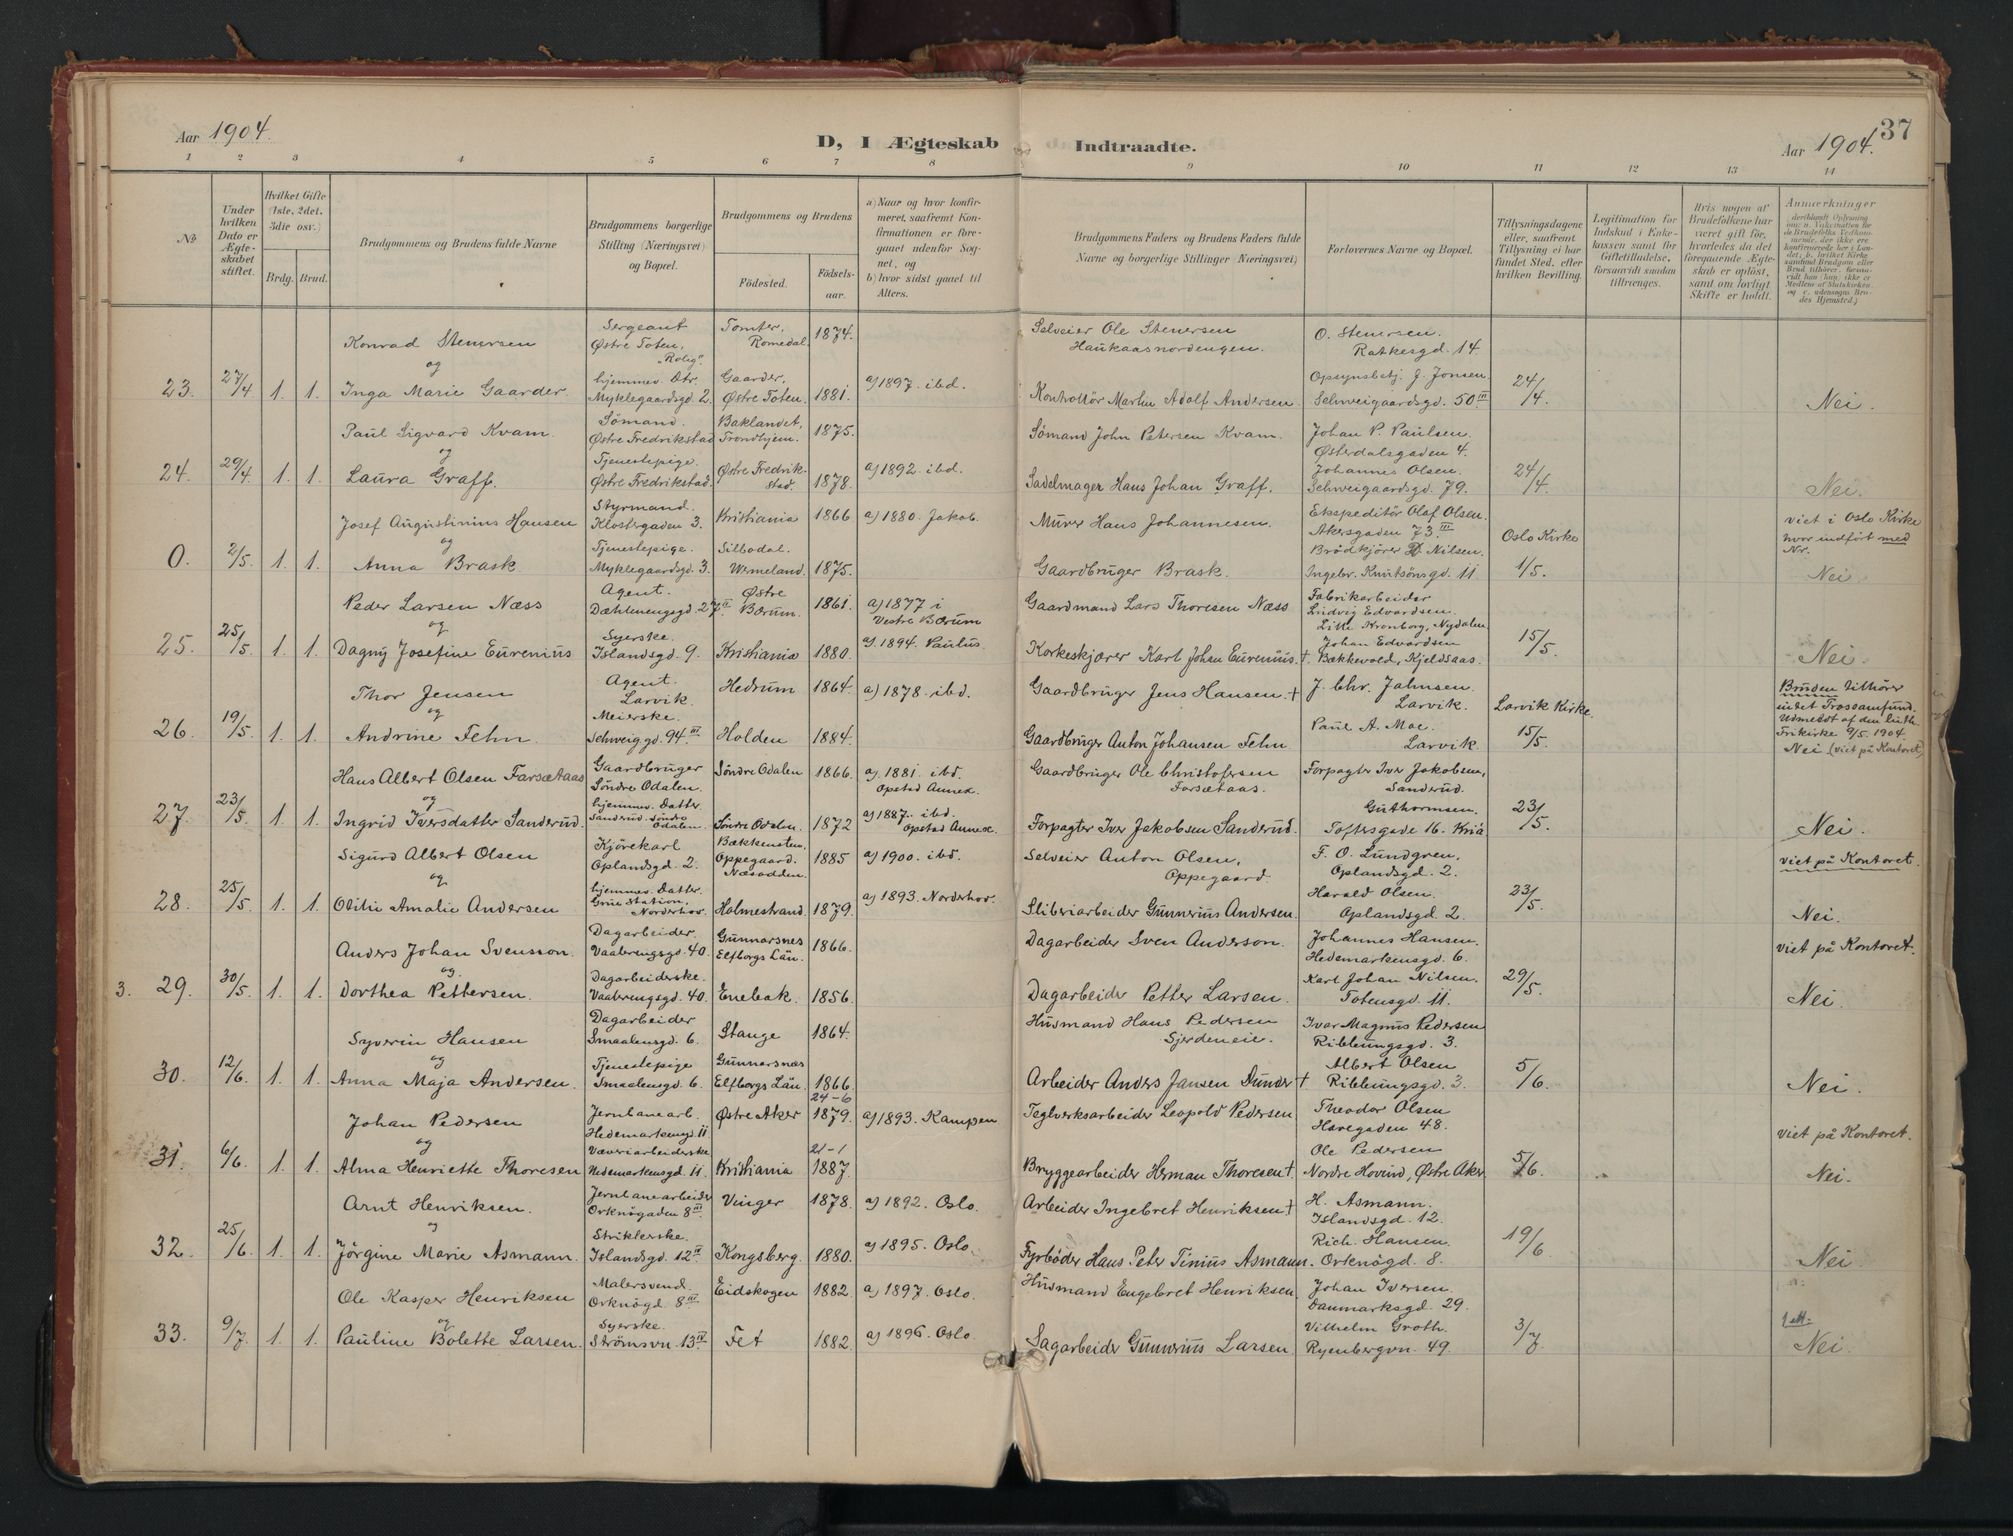 Aar 1904.
D, I Ægteskab Indtraadte.
Aar 1904.
37
1 2 3 4 5 6 7 8 9 10 11 12 13 14
No
Under hvilken Dato er Ægteskabet stiftet.
Hvilket Gifte (1ste, 2det, 3die osv.)
Brdg. Brud.
Brudgommens og Brudens fulde Navne
Brudgommens borgerlige Stilling (Næringsvei) og Bopæl.
Brudgommens og Brudens
Fødested.
Fødselsaar.
a) Naar og hvor konfirmeret, saafremt Konfirmationen er foregaaet udenfor Sognet, og
b) hvor sidst gaaet til Alters.
Brudgommens Faders og Brudens Faders fulde Navne og borgerlige Stillinger (Næringsvei)
Forlovernes Navne og Bopæl.
Tillysningsdagene eller, saafremt Tillysning ei har fundet Sted, efter hvilken Bevilling.
Legitimation for Indskud i Enkekassen samt for Giftetilladelse, forsaavidt saadan tiltrænges.
Hvis nogen af Brudefolkene har været gift før, hvorledes da det foregaaende Ægteskab er opløst, samt om lovligt Skifte er holdt.
Anmærkninger
Konrad Stenersen Sergeant Østre Toten, "Rolig" Tomter, Romedal 1874. Selveier Ole Stenersen Haukaasnordengen. O. Stenersen. Ratkesgd. 14.
og
23. 27/4 1. 1. Inga Marie Gaarder. hjemmev. Dtr. Myklegaardsgd. 2. Gaarder, Østre Toten. 1881. a) 1897. ibd. Kontrollör Martin Adolf Andersen. Opsynsbetj. J. Jonsen. Schweigaardsgd. 50 III 24/4. Nei.
Paul Sigvard Kvam. Sömand. Østre Fredrikstad Baklandet, Trondhjem. 1875. Sömand John Petersen Kvam. Johan P. Paulsen. Østerdalsgaden 4.
og
24. 29/4. 1. 1. Laura Graff. Tjenestepige. Østre Fredrikstad. Østre Fredrikstad. 1878. a) 1892. ibd. Sadelmager Hans Johan Graff. Johannes Olsen. Schweigaardsgd. 79. 24/4. Nei.
Josef Augustinius Hansen Styrmand. Klostergaden 3. Kristiania 1866 a) 1880. Jakob. Murer Hans Johannesen. Ekspeditör Olaf Olsen. Akersgaden 73 III Oslo Kirke viet i Oslo Kirke hvor indfört med Nr.
og
0. 2/5. 1. 1. Anna Brask Tjenestepige. Myklegaardsgd. 3. Silbodal. Wermeland. 1875. Gaardbruger Brask. Brödkjörer D. Nilsen. Ingebr. Knutsönsgd. 11 1/5. Nei
Peder Larsen Næss Agent. Dæhlenengsgd. 27 II Østre Bærum. 1861. a) 1877 i Vestre Bærum Gaardmand Lars Thoresen Næss Fabrikarbeider Ludvig Edvardsen. Lille Kronborg, Nydalen
og
25. 25/5. 1. 1. Dagny Josefine Eurenius Syerske. Islandsgd. 9. Kristiania 1880. a). 1894. Paulus. Korkeskjærer Karl Johan Eurenius. + Johan Edvardsen Bækkevold, Kjeldsaas. 15/5. Nei.
Thor Jensen Agent. Larvik Hedrum 1864. a) 1878. ibd. Gaardbruger Jens Hansen. + J. Chr. Jahnsen. Larvik. Larvik Kirke. Bruden tilhörer intet Trossamfund. Udmeldt af den luth. Frikirke 9/5. 1904.
og
26. 19/5. 1. 1. Andrine Fehn. Meierske. Schweiggd. 94. III Halden 1884. Gaardbruger Anton Johansen Fehn Paul A. Moe. Larvik. 15/5. Nei (viet på Kontoret)
Hans Albert Olsen Farsætaas Gaardbruger Söndre Odalen. Söndre Odalen 1866. a) 1881. ibd. Opstad Annex. Gaardbruger Ole Christofersen Farsætaas. Forpagter Iver Jakobsen, Sanderud.
og
27. 23/5. 1. 1. Ingrid Iversdatter Sanderud. hjemmev. Datter Sanderud. Söndre Odalen. Söndre Odalen. 1872 a) 1887. ibd. Opstad Annex. Forpagter Iver Jakobsen Sanderud. Guthormsen. Toftesgade 16. Kria 23/5. Nei.
Sigurd Albert Olsen Kjörekarl Oplandsgd. 2. Bækkensten, Oppegaard. Næsodden. 1885 a) 1900. ibd. Selveier Anton Olsen, Oppegaard. F. O. Lundgren. Oplandsgd. 2. viet på Kontoret.
og
28. 25/5. 1. 1. Otilie Amalie Andersen hjemmev. Datter. Grue Station, Norderhov. Holmestrand 1879. a) 1893. Norderhov. Sliberiarbeider Gunnerius Andersen. Harald Olsen. Oplandsgd. 2 23/5. Nei.
Anders Johan Svensson. Dagarbeider. Vaalerengsgd. 40. Gunnarsnes Elfborgs Län. 1866. Dagarbeider Sven Anderson. Johannes Hansen. Hedemarkensgd. 6. viet på Kontoret.
og.
3. 29. 30/5. 1. 1. Dorthea Pettersen. Dagarbeiderske. Vaalerengsgd. 40. Enebak. 1856. Dagarbeider Petter Larsen. Karl Johan Nilsen. Totensgd. 11. 29/5. Nei.
Syverin Hansen Dagarbeider Smaalensgd. 6. Stange 1864. Husmand Hans Pedersen Gjerdeneie. Ivar Magnus Pedersen Ribbungsgd. 3.
og
30. 12/6. 1. 1. Anna Maja Andersen. Tjenestepige Smaalensgd. 6. Gunnarsnæs Elfborgs Län. 1866. Arbeider Anders Jansen Dunder + Albert Olsen Ribbungsgd. 3 5/6. Nei.
Johan Pedersen Jernbanearb. Hedemarkengd. 11 Østre Aker 24-6 1879. a) 1893. Kampen Teglverksarbeider Leopold Pedersen Theodor Olsen Haregaden 48. viet på Kontoret.
og
31. 6/6. 1. 1. Alma Henriette Thoresen Væveriarbeiderske Hedemarkensgd. 11. Kristiania 21-1 1887. Bryggearbeider Herman Thoresen. + Ole Pedersen Nordre Hovind, Østre Aker. 5/6. Nei.
Arnt Henriksen. Jernbanearbeider Orknögaden 8 III. Vinger 1878. a) 1892. Oslo. Arbeider Ingebret Henriksen + H. Asmann. Islandsgd. 12.
og
32. 25/6. 1. 1. Jörgine Marie Asmann. Striklerske. Islandsgd. 12 II Kongsberg. 1880. a) 1895. Oslo. Fyrböder Hans Peter Tinius Asmann. Rich. Hansen. Orknögd. 8. 19/6. Nei.
Ole Kasper Henriksen Malersvend. Orknögd. 8 III Eidskogen 1882. a) 1897. Oslo. Husmand Engebret Henriksen Johan Iversen. Danmarksgd. 29.
og
33. 9/7. 1. 1. Pauline Bolette Larsen. Syerske. Strömsvn. 13 IV. Fet 1882. a) 1896. Oslo. Sagarbeider Gunnerius Larsen. Vilhelm Groth. Ryenbergvn. 49. 3/7. Nei.